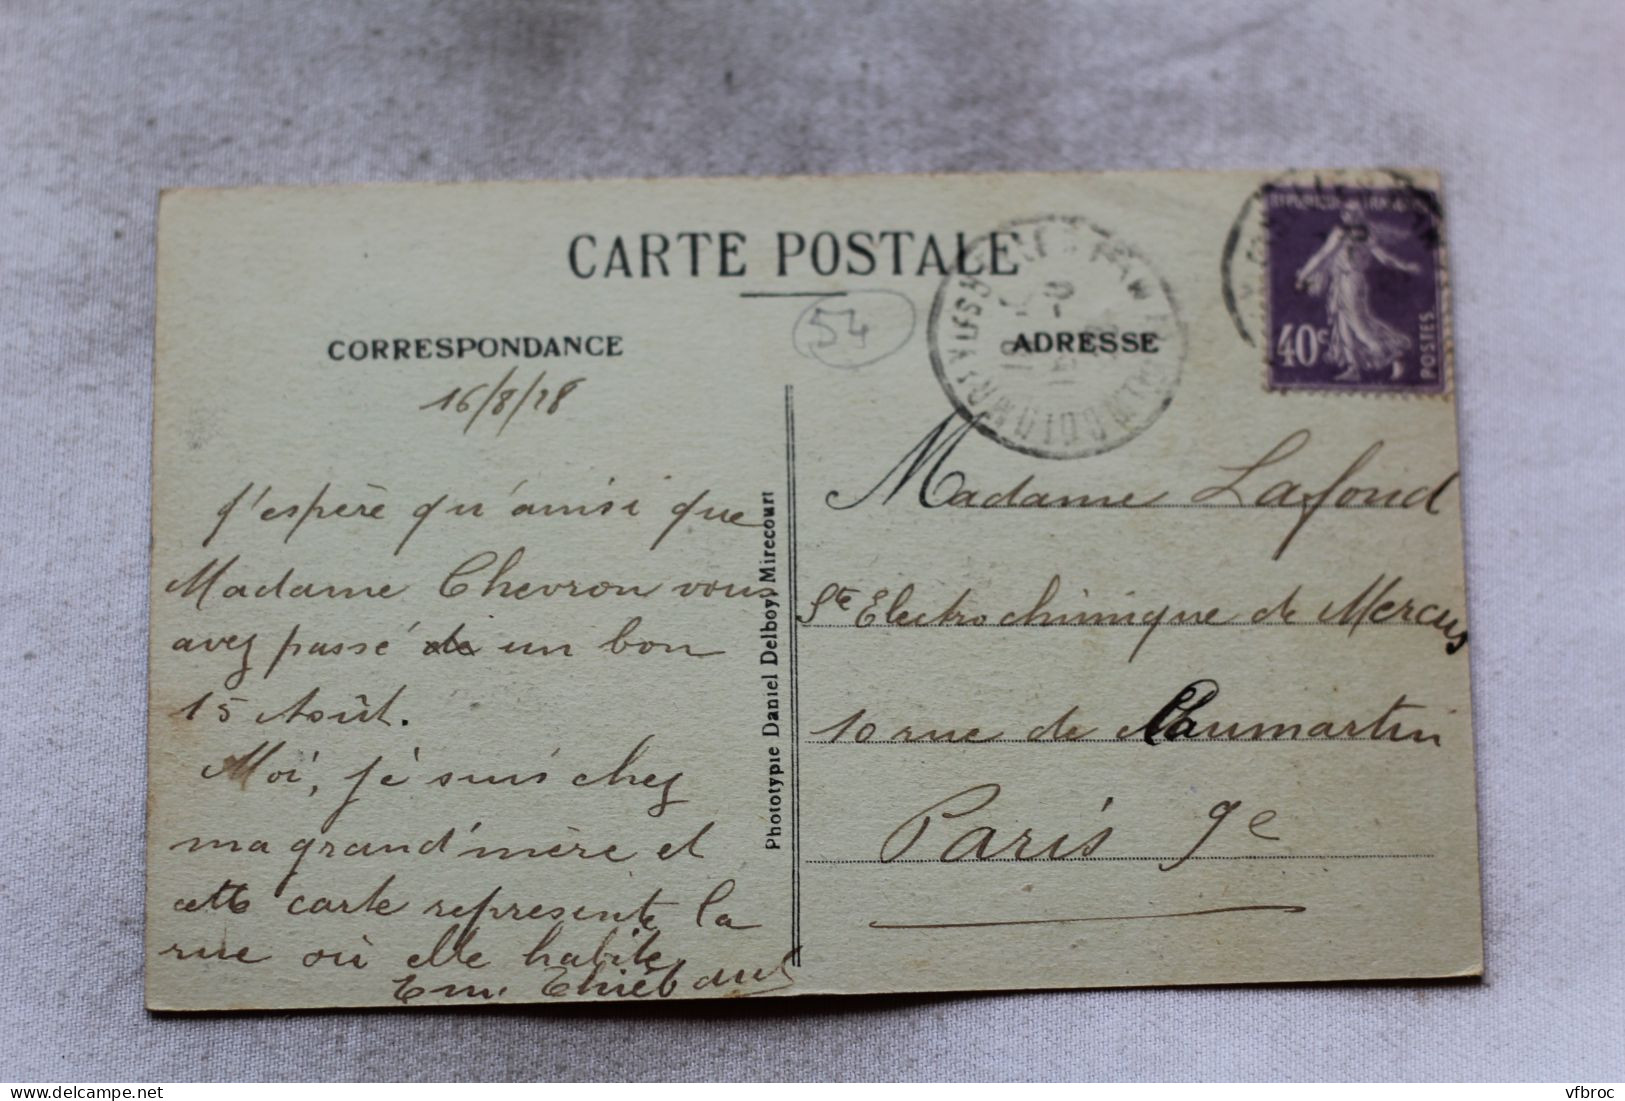 CARTE POSTALE
CORRESPONDANCE
54
ADRESSE
40c
POSTES
16/8/28
J'espère qu'ainsi que
Madame Chevron vous
avez passé de un bon
15 Août.
Moi, je suis chez
ma grand'mère et
cette carte représente la
rue où elle habite
Em. Thiébaud
Phototypie Daniel Delboy, Mirecourt
Madame Lafond
Sté Electrochimique de Mercus
10 rue de Caumartin
Paris 9e
www.delcampe.net
vfbroc